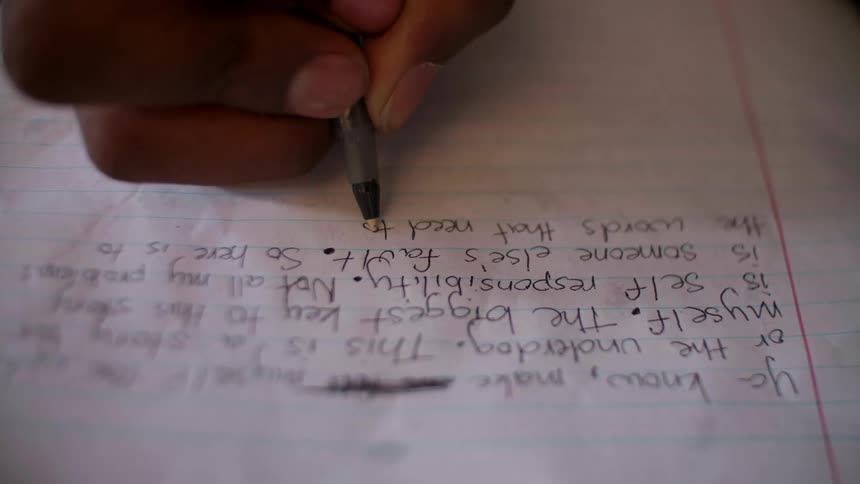 ya know, make myself the
or the underdog. This is a story
myself. The biggest key to this story
is self responsibility. Not all my problems
is someone else's fault. So here is to
the words that need to